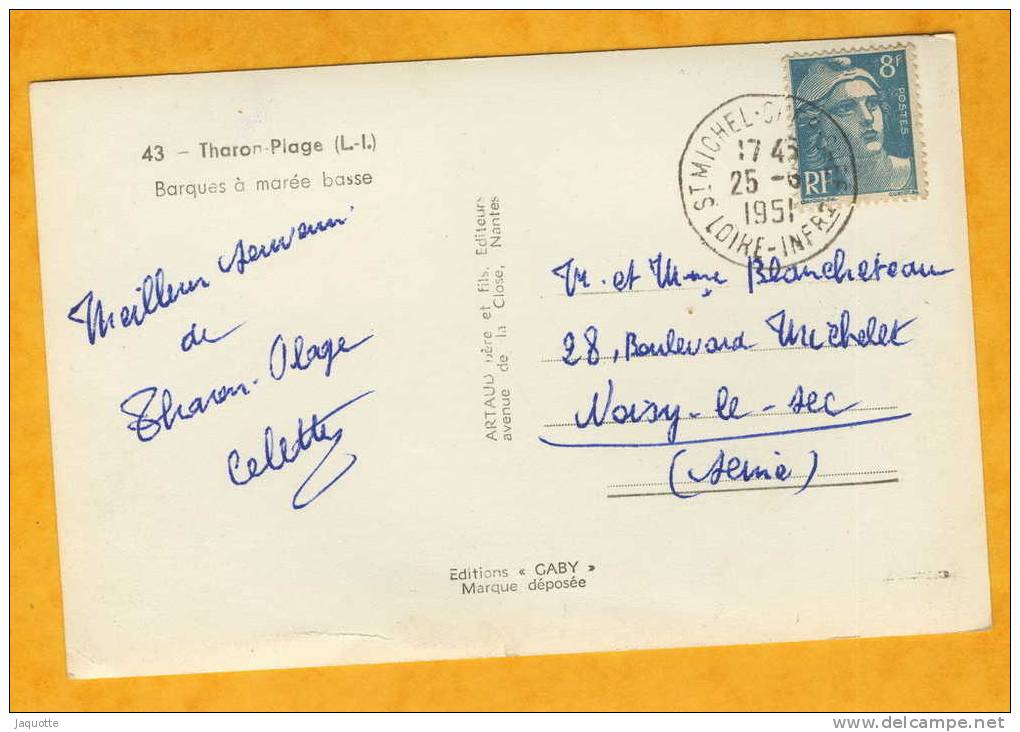 43 - Tharon-Plage (L.-I.)
Barques à marée basse
Meilleur souvenir
de
Tharon-Plage
Celette
ARTAUD père et fils. Editeurs
avenue de la Close, Nantes
8F
POSTES
RF
ST MICHEL-
17 45
25 -6
1951
LOIRE-INFRE
Mr. et Mme Blancheteau
28, Boulevard Michelet
Noisy-le-sec
(Seine)
Editions « GABY »
Marque déposée
Jaquotte
www.delcampe.net